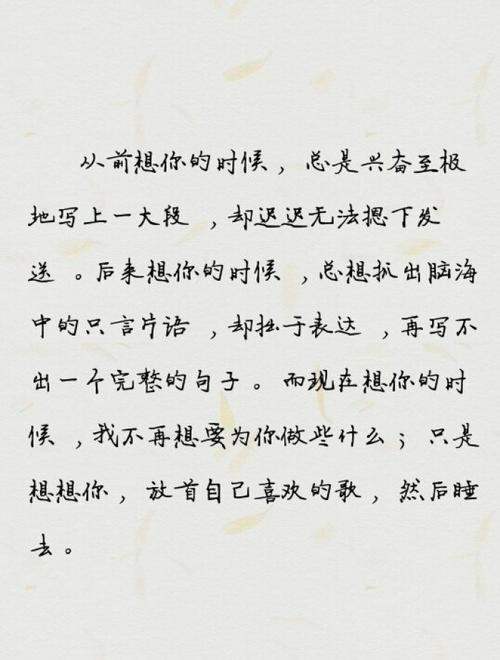 从前想你的时候，总是兴奋至极
地写上一大段，却迟迟无法摁下发
送。后来想你的时候，总想扒出脑海
中的只言片语，却拙于表达，再写不
出一个完整的句子。而现在想你的时
候，我不再想要为你做些什么；只是
想想你，放首自己喜欢的歌，然后睡
去。